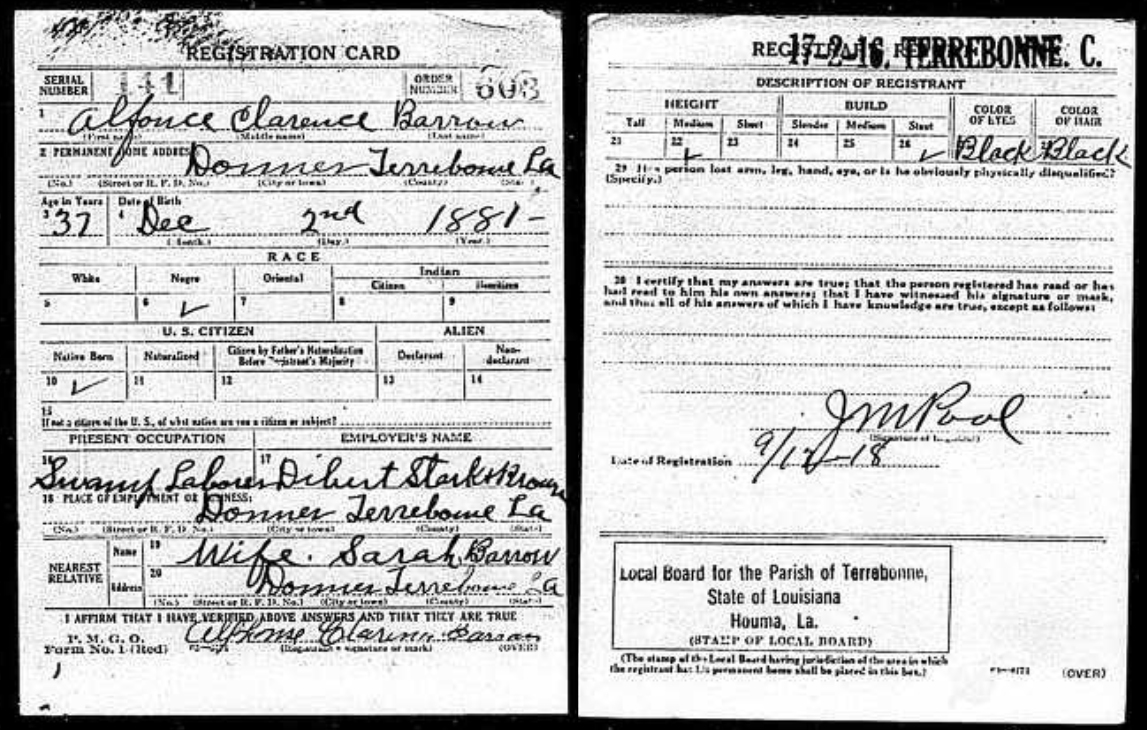 REGISTRATION CARD
SERIAL NUMBER 441 ORDER NUMBER 603
1 Alfonce Clarence Barrow
(First name) (Middle name) (Last name)
2 PERMANENT HOME ADDRESS Donner Terrebonne La
(No.) (Street or R. F. D. No.) (City or town) (County) (State)
Age in Years Date of Birth
3 37 4 Dec 2nd 1881-
(Month.) (Day.) (Year.)
RACE
White Negro Oriental Indian
Citizen
5 6 ✓ 7 8 9
U. S. CITIZEN ALIEN
Native Born Naturalized Citizen by Father's Naturalization Before Registrant's Majority Declarant Non-declarant
10 ✓ 11 12 13 14
15
If not a citizen of the U. S., of what nation are you a citizen or subject?
PRESENT OCCUPATION EMPLOYER'S NAME
16 Swamp Laborer 17 Dibert Stark & Brown
18 PLACE OF EMPLOYMENT OR BUSINESS:
Donner Terrebonne La
(No.) (Street or R. F. D. No.) (City or town) (County) (State)
NEAREST RELATIVE Name 19 Wife. Sarah Barrow
Address 20 Donner Terrebonne La
(No.) (Street or R. F. D. No.) (City or town) (County) (State)
I AFFIRM THAT I HAVE VERIFIED ABOVE ANSWERS AND THAT THEY ARE TRUE
P. M. G. O.
Form No. 1 (Red) Alphonse Clarence Barrow
(Registrant's signature or mark) (OVER)
17-2-16. TERREBONNE. C.
DESCRIPTION OF REGISTRANT
HEIGHT BUILD COLOR OF EYES COLOR OF HAIR
Tall Medium Short Slender Medium Stout
21 22 ✓ 23 24 25 26 ✓ Black Black
29 Has person lost arm, leg, hand, eye, or is he obviously physically disqualified?
(Specify.)
30 I certify that my answers are true; that the person registered has read or has
had read to him his own answers; that I have witnessed his signature or mark,
and that all of his answers of which I have knowledge are true, except as follows:
J M Pool
(Signature of Registrar)
Date of Registration 9/12-18
Local Board for the Parish of Terrebonne,
State of Louisiana
Houma, La.
(STAMP OF LOCAL BOARD)
(The stamp of the Local Board having jurisdiction of the area in which
the registrant has his permanent home shall be placed in this box.)
(OVER)